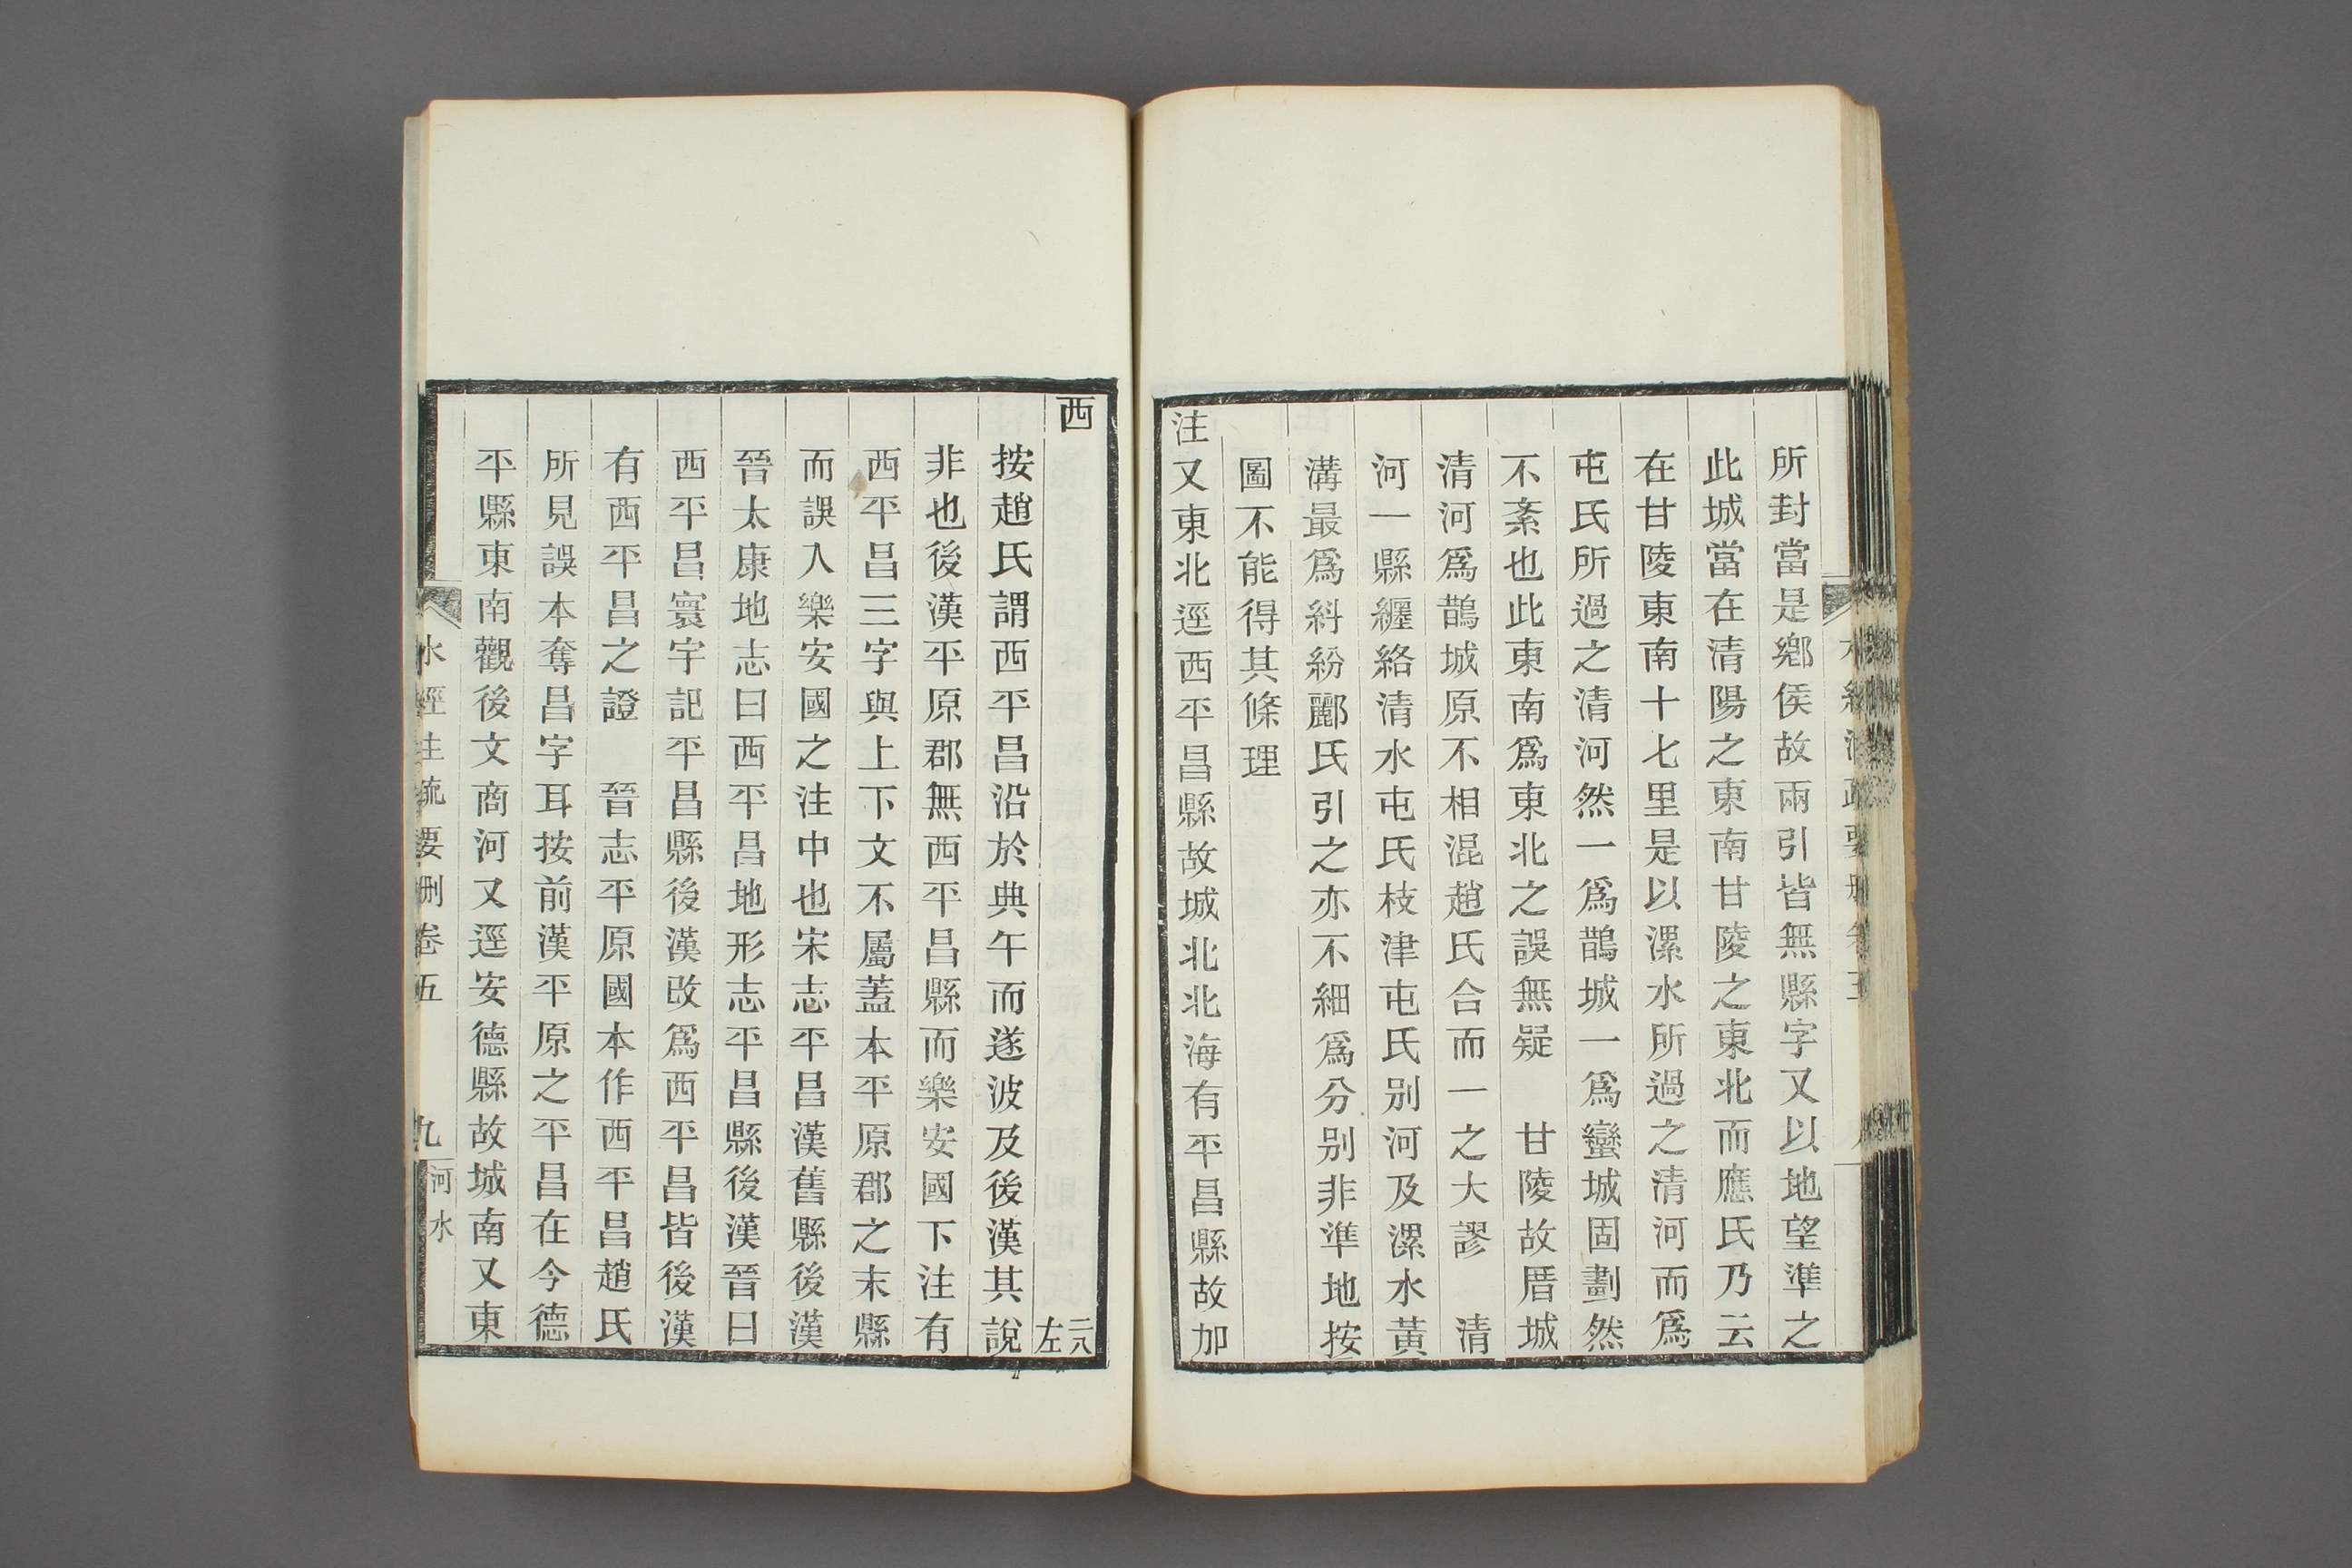 所封當是鄉侯故兩引皆無縣字又以地望準之
此城當在清陽之東南甘陵之東北而應氏乃云
在甘陵東南十七里是以漯水所過之清河而爲
屯氏所過之清河然一爲鵲城一爲蠻城固劃然
不紊也此東南爲東北之誤無疑　甘陵故厝城
清河爲鵲城原不相混趙氏合而一之大謬　清
河一縣纏絡清水屯氏枝津屯氏別河及漯水黃
溝最爲糾紛酈氏引之亦不細爲分別非準地按
圖不能得其條理
注又東北逕西平昌縣故城北北海有平昌縣故加
西　二八左
按趙氏謂西平昌沿於典午而遂波及後漢其說
非也後漢平原郡無西平昌縣而樂安國下注有
西平昌三字與上下文不屬蓋本平原郡之末縣
而誤入樂安國之注中也宋志平昌漢舊縣後漢
晉太康地志曰西平昌地形志平昌縣後漢晉曰
西平昌寰宇記平昌縣後漢改爲西平昌皆後漢
有西平昌之證　晉志平原國本作西平昌趙氏
所見誤本奪昌字耳按前漢平原之平昌在今德
平縣東南觀後文商河又逕安德縣故城南又東
水經注疏要刪卷五　九　河水